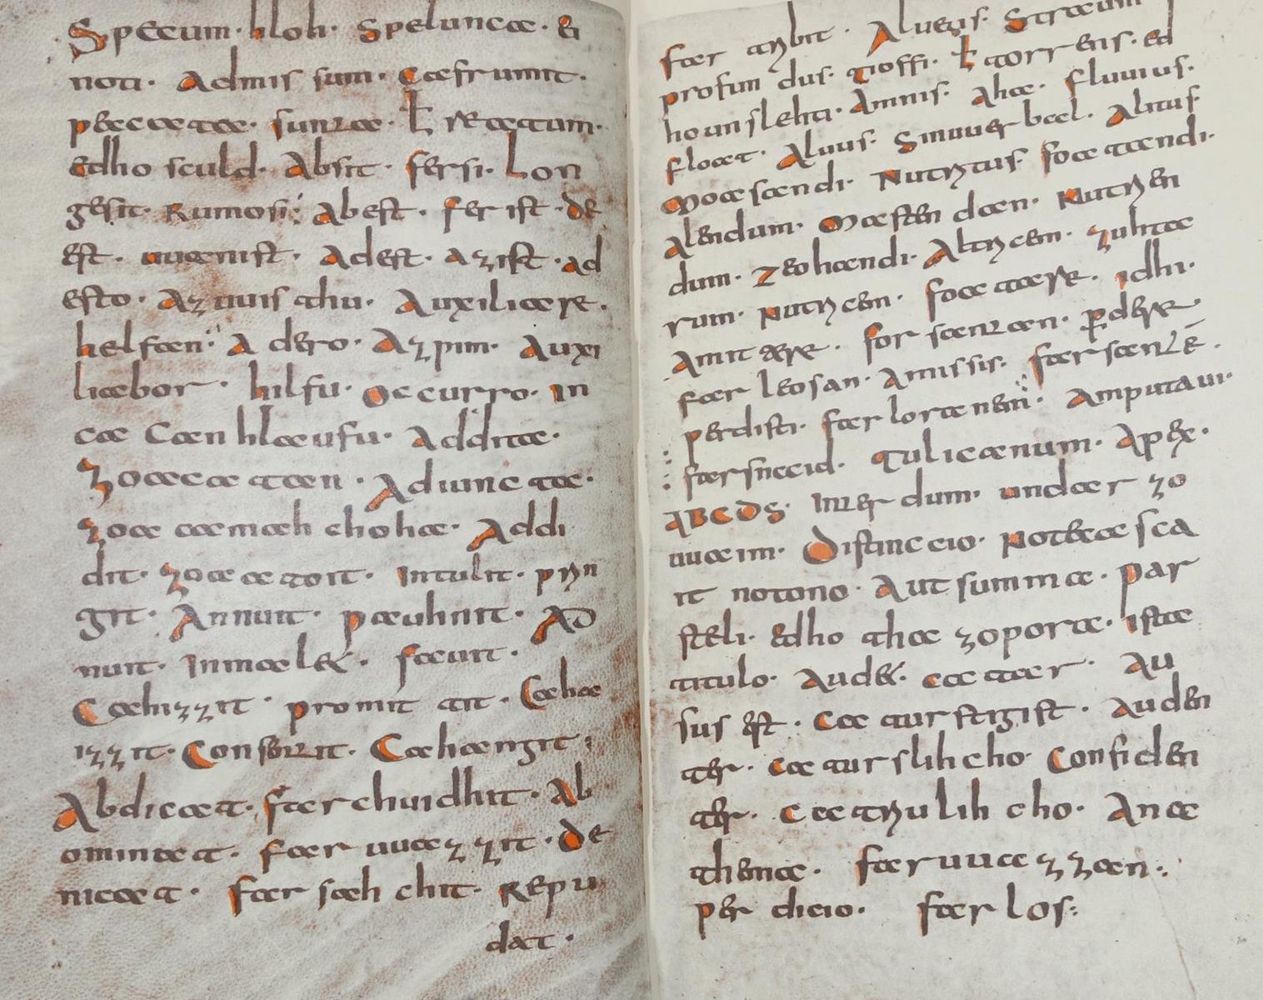 Specum · hloh · Speluncae · &
noti · Admissum · Caefrumit ·
peccatae · suntae · ł reatum ·
edho sculd · Absit · fersi · Lon
gesit · Rumosi · Abest · ferist · de
est · uuanist · Adest · azist · ad
esto · Azuuis thu · Auxiliare ·
helfan · Adero · Azpim · Auxi
liabor · hilfu · Occurro · In
ca Can hlaufu · Additae ·
zocatan · Adiunctae ·
zoca camah choha · Addi
dit · zocatoit · Intulit · prin
git · Annuit · pauhnit · AD
nuit · Inmalet · fauit ·
Cahizzit · promittit · Caha
izzit · Consentit · Cahangit ·
Abdicat · farchuidhit · Ab
ominat · faruuazzit · De
nicat · farsahchit · Repu
dat ·
far tribit · Alueus · Stratum
profundus · tioffi · ł torrens · ed
hounslehti · Amnis · Aha · fluuius ·
float · Aluus · Sinuuerbal · Altus
Moascendi · Nutritus · foatendi ·
Alendum · Mastendan · Nutrien
dum · zeohandi · Altricem · zuhita
rum · nutricem · foatare · idhi ·
Amittere · forsantan · perdere
far leosan · Amissis · farsante ·
perdisti · farloranem · Amputaui ·
farsneid · Tulicanum · Apex ·
ABCDS · Interdum · undar zo
uuaim · Distinctio · Notbeascea
it notono · Aut summa · par
steli · edho tha zoporta · ista
titulo · Audet · catar · Au
sus est · Caturstigist · Auden
ter · Catur slihcho · Confiden
ter · Catriulihcho · Ana
thema · faruuazzan ·
perdicio · farlos ·